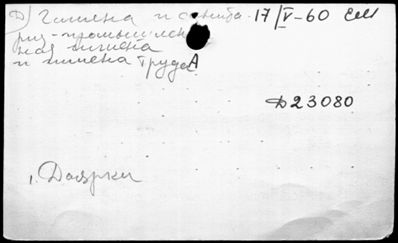 Д) Гигиена и санита- 17/V-60
рия-промышлен
ная гигиена
и гигиена труда
Д23080
1. Доярки